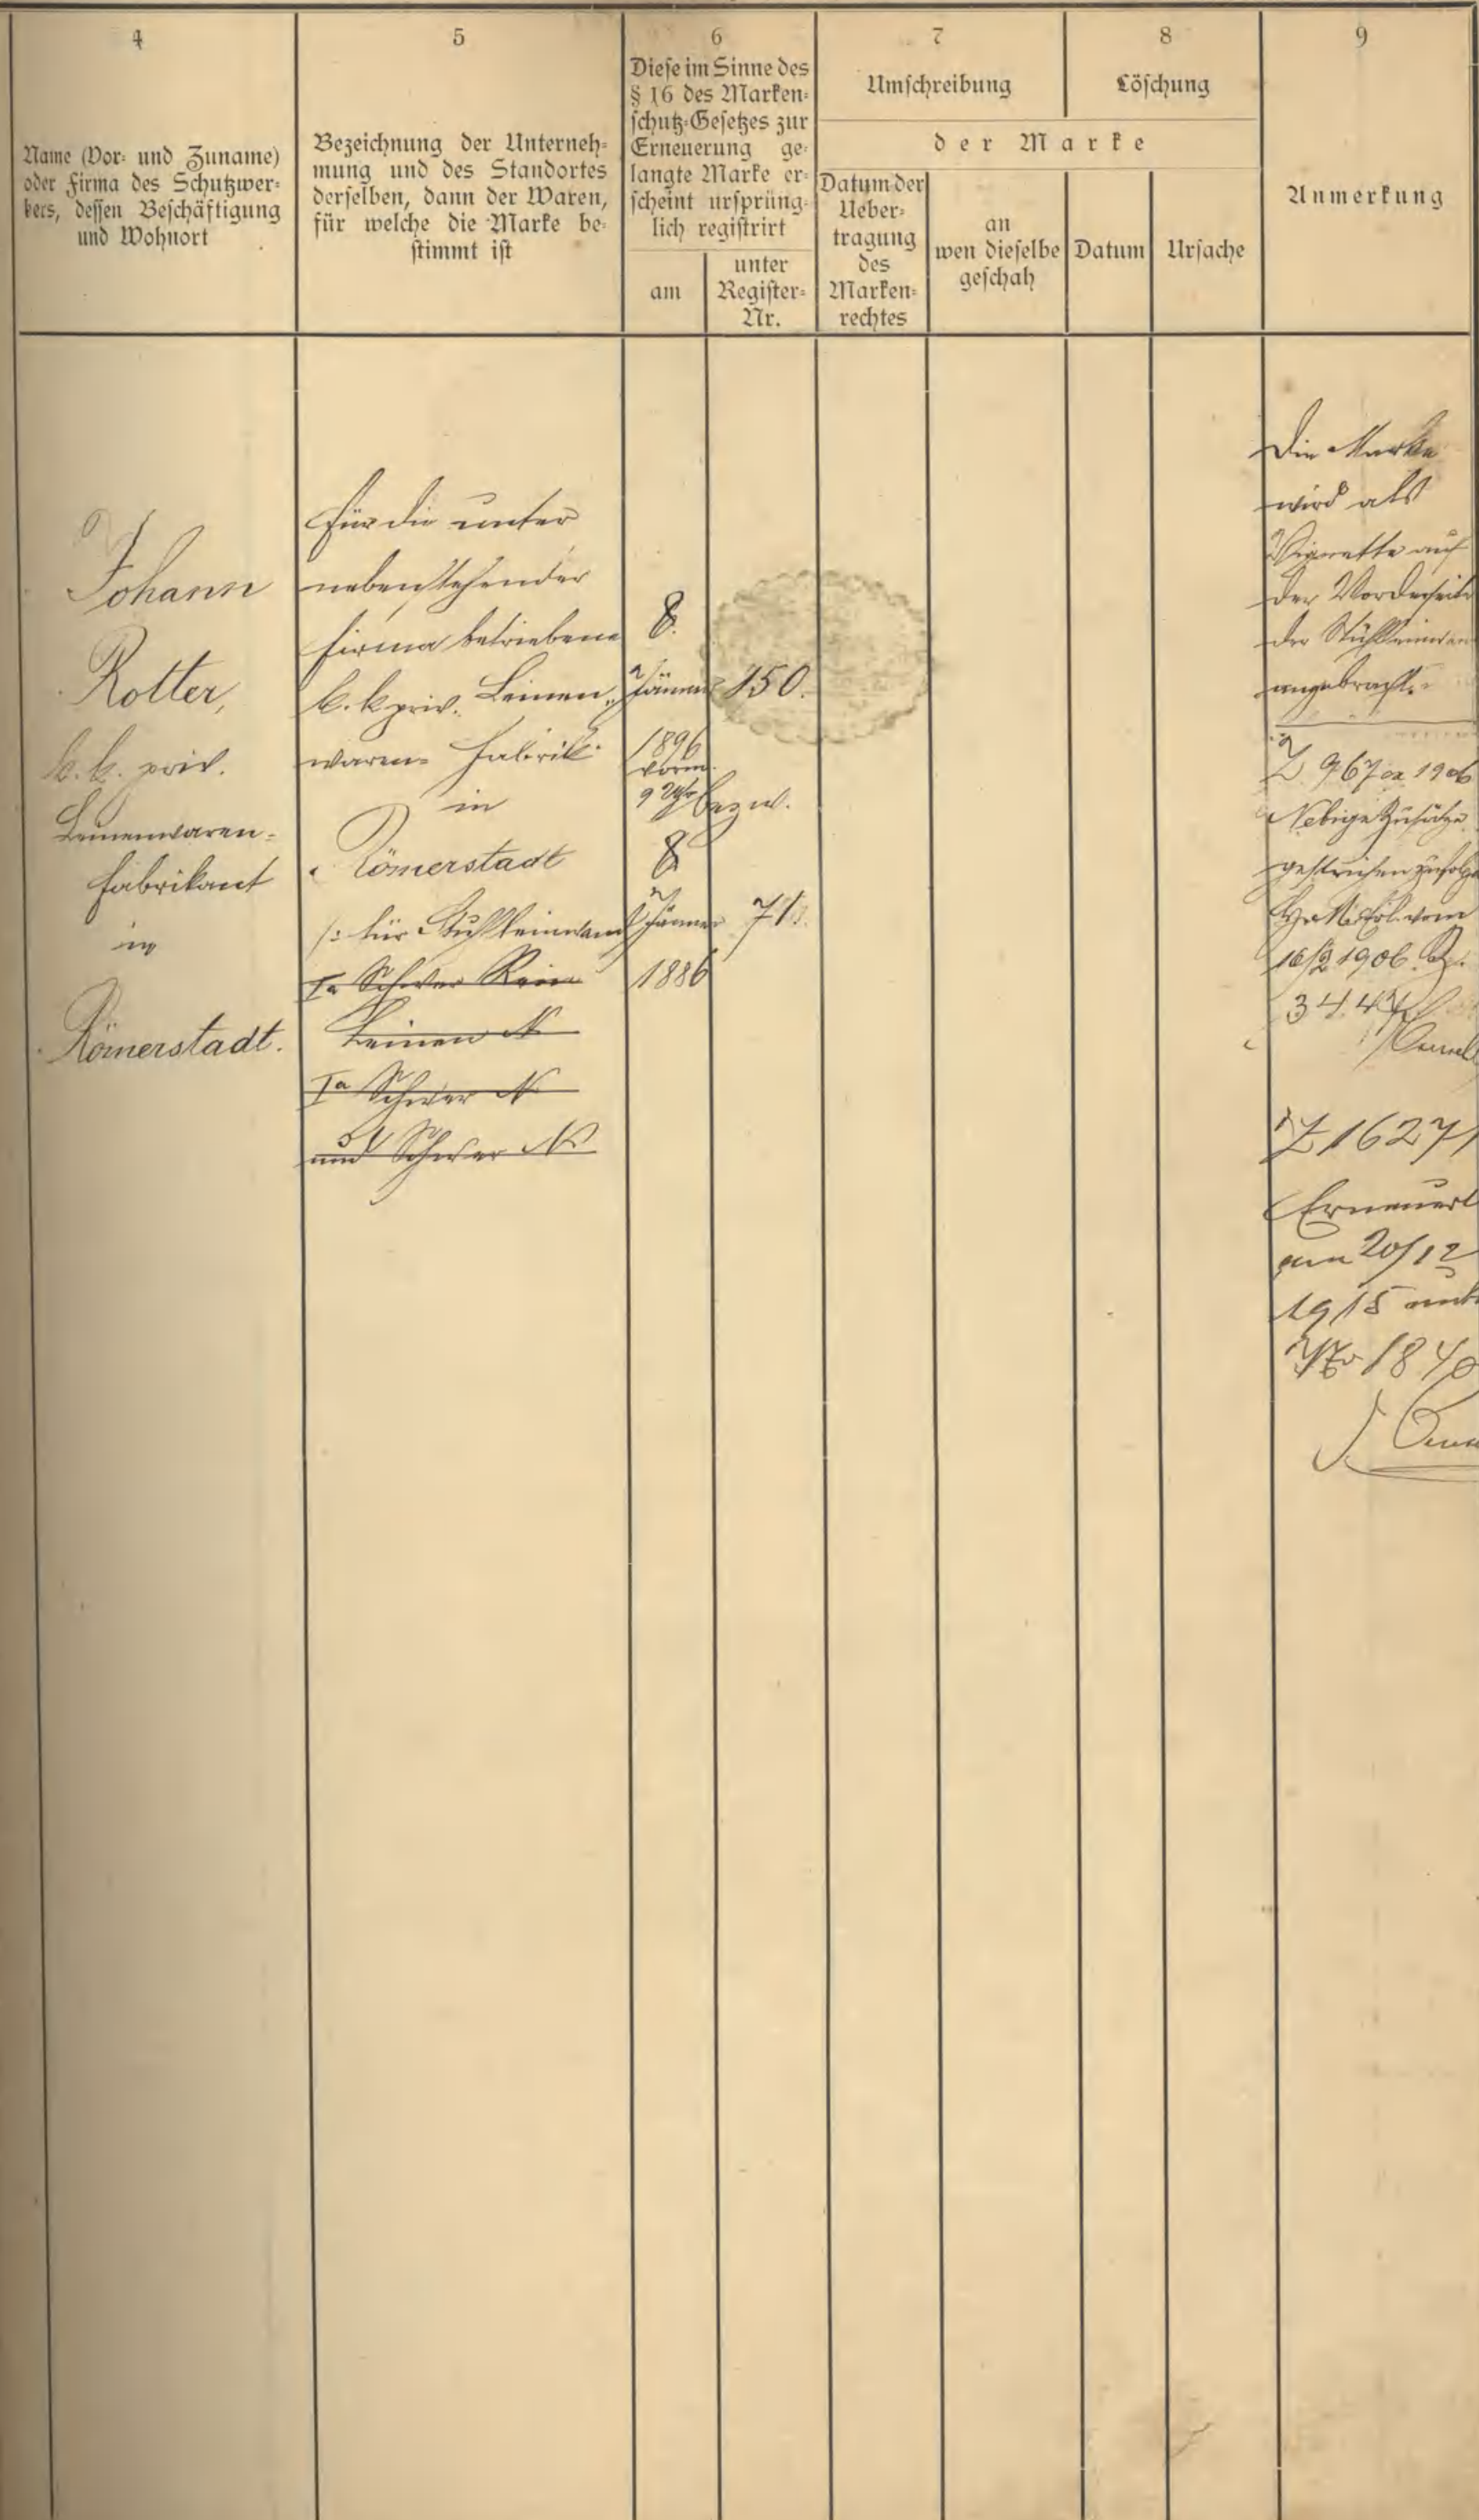 4
Name (Vor- und Zuname)
oder Firma des Schutzwer-
bers, dessen Beschäftigung
und Wohnort
5
Bezeichnung der Unterneh-
mung und des Standortes
derselben, dann der Waren,
für welche die Marke be-
stimmt ist
6
Diese im Sinne des
§ 16 des Marken-
schutz-Gesetzes zur
Erneuerung ge-
langte Marke er-
scheint ursprüng-
lich registrirt
am
unter
Register-
Nr.
7
Umschreibung
8
Löschung
der Marke
Datum der
Ueber-
tragung
des
Marken-
rechtes
an
wen dieselbe
geschah
Datum
Ursache
9
Anmerkung
Johann
Rotter,
k. k. priv.
Leinenwaren-
fabrikant
in
Römerstadt.
Für die unter
nebenstehender
Firma betriebene
k. k. priv. Leinen-
waren- Fabrik
in
Römerstadt
/: für Stuhlleinwand
Ia Schwer Rein
Leinen N
Ia Schwer N
und Schwer No
8.
Jänner
1896
vorm.
9 Uhr
bezw.
8
Jänner
1886
150.
71.
Die Marke
wird als
Vignette auf
der Vorderseite
der Stuhlleinwan
angebracht.
Z. 967 ex 1906
Nebige Zusätze
gestrichen zufolge
H. M. Erl. vom
16/2 1906 Z.
Z 1627/
Erneuert
am 20/12
1915 unt
No 1840